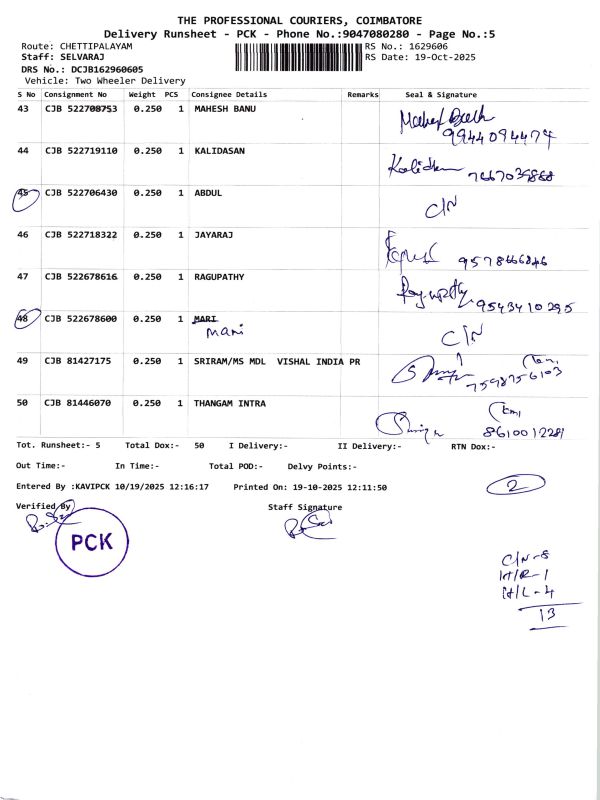 THE PROFESSIONAL COURIERS, COIMBATORE
Delivery Runsheet - PCK - Phone No.:9047080280 - Page No.:5
Route: CHETTIPALAYAM RS No.: 1629606
Staff: SELVARAJ RS Date: 19-Oct-2025
DRS No.: DCJB162960605
Vehicle: Two Wheeler Delivery
S No Consignment No Weight PCS Consignee Details Remarks Seal & Signature
43 CJB 522708753 0.250 1 MAHESH BANU
9944094474
44 CJB 522719110 0.250 1 KALIDASAN Kalidasan
7667039868
45 CJB 522706430 0.250 1 ABDUL C/N
46 CJB 522718322 0.250 1 JAYARAJ
9578666846
47 CJB 522678616 0.250 1 RAGUPATHY Ragupathy
9543410295
48 CJB 522678600 0.250 1 MARI C/N
Mani
49 CJB 81427175 0.250 1 SRIRAM/MS MDL VISHAL INDIA PR
7598756103
50 CJB 81446070 0.250 1 THANGAM INTRA
8610012281
Tot. Runsheet:- 5 Total Dox:- 50 I Delivery:- II Delivery:- RTN Dox:-
Out Time:- In Time:- Total POD:- Delvy Points:-
Entered By :KAVIPCK 10/19/2025 12:16:17 Printed On: 19-10-2025 12:11:50
2
Verified By Staff Signature
PCK
C/N-8
H/R-1
H/L-4
13